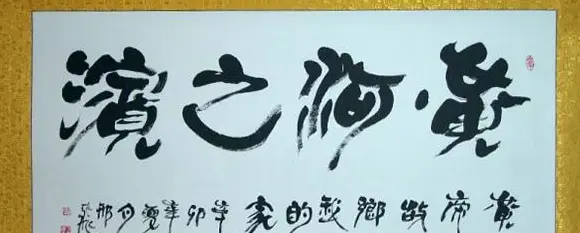 黄河之濱
黄帝故鄉我的家辛卯年夏月邢